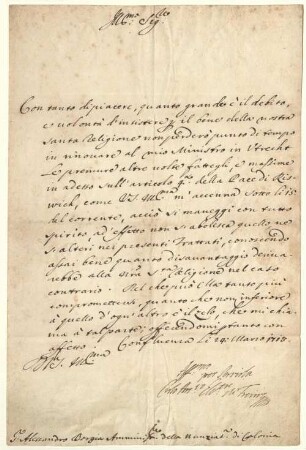 Ill.mo Sig.re
Con tanto di piacere, quanto grande è il debito,
e volontà d'insistere il bene della nostra
Santa Religione non perderò punto di tempo
in rinovare al mio Ministro in Utrecht
le premure altre volte fattegli, e massime
in adesso sull'articolo 4.º della Pace di Ris
wich, come V.S. Ill.ma m'accenna sotto li 15
del corrente, acciò si maneggi con tutto
spirito, ad effetto non si abolisca quello ne
si alteri nei presenti Trattati, conoscendo
assai bene quanto disavantaggio derivar
rebbe alla Religione nel caso
contrario. Nel che può Ella tanto più
compromettersi, quanto che non inferiore
à quello d'ogni altro è il zelo, che mi chia
ma à tal parte; offerendomi pertanto con
affetto. 24 Marzo 1713.
D. V.S. Ill.ma
Aff.mo per servirla
S.r Alessandro Borgia Amminis.re della Nunziat.ra di Colonia